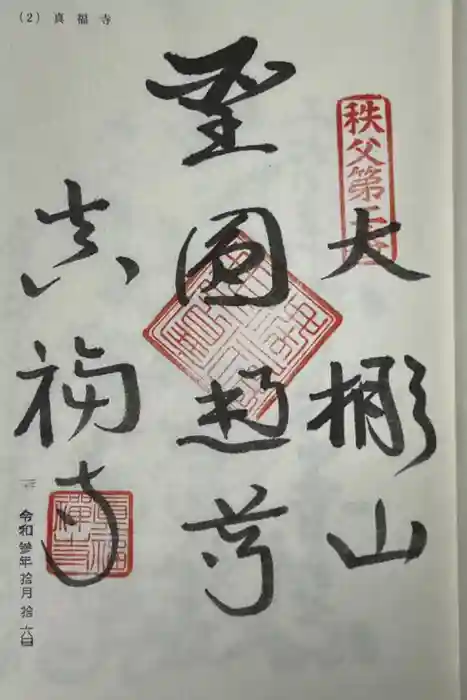 (2) 真福寺
秩父第二番
大棚山
聖圓通尊
真福寺
令和參年拾月拾六日